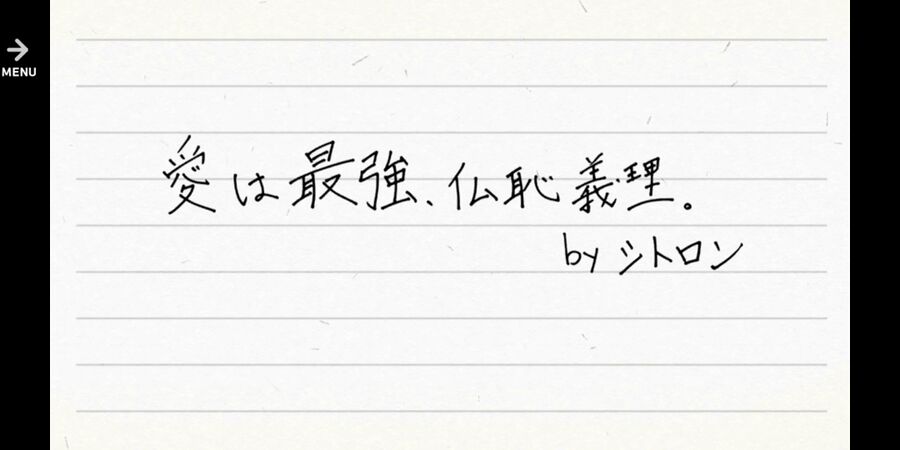 MENU
愛は最強、仏恥義理。
by シトロン